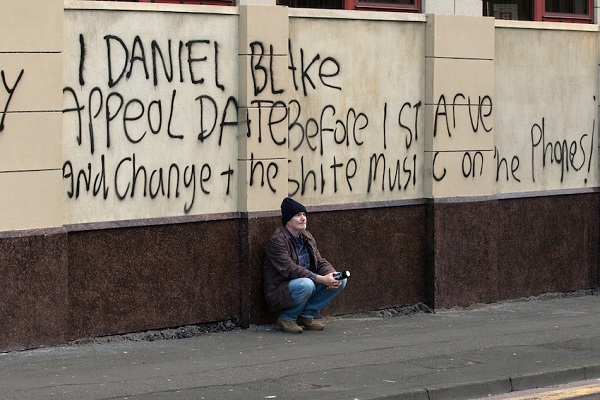 I DANIEL BLAke
y APPeal DATE BeFore I STArve
and Change the shite Music on the Phones!